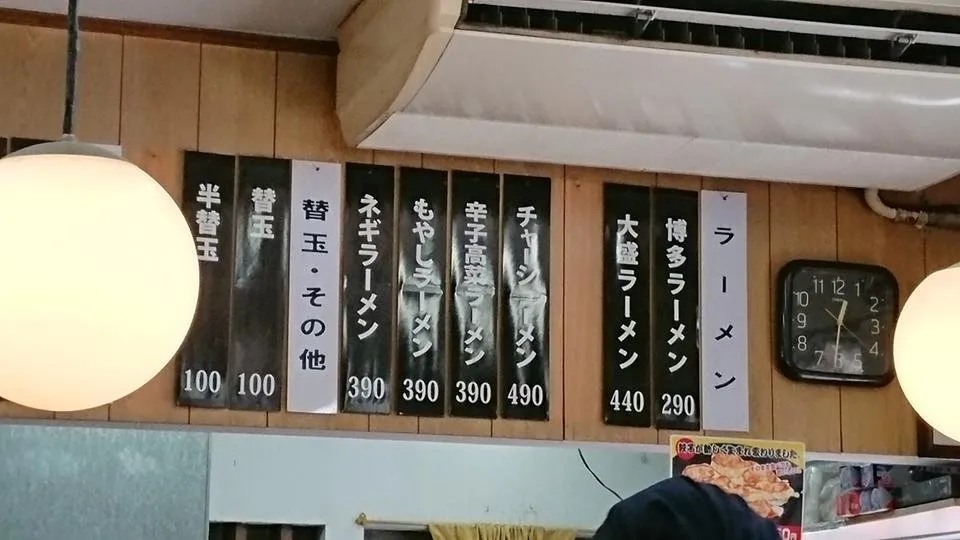 ラーメン
博多ラーメン
290
大盛ラーメン
440
チャーシューメン
490
辛子高菜ラーメン
390
もやしラーメン
390
ネギラーメン
390
替玉・その他
替玉
100
半替玉
100
11 12 1
10 2
9 3
8 4
7 6 5